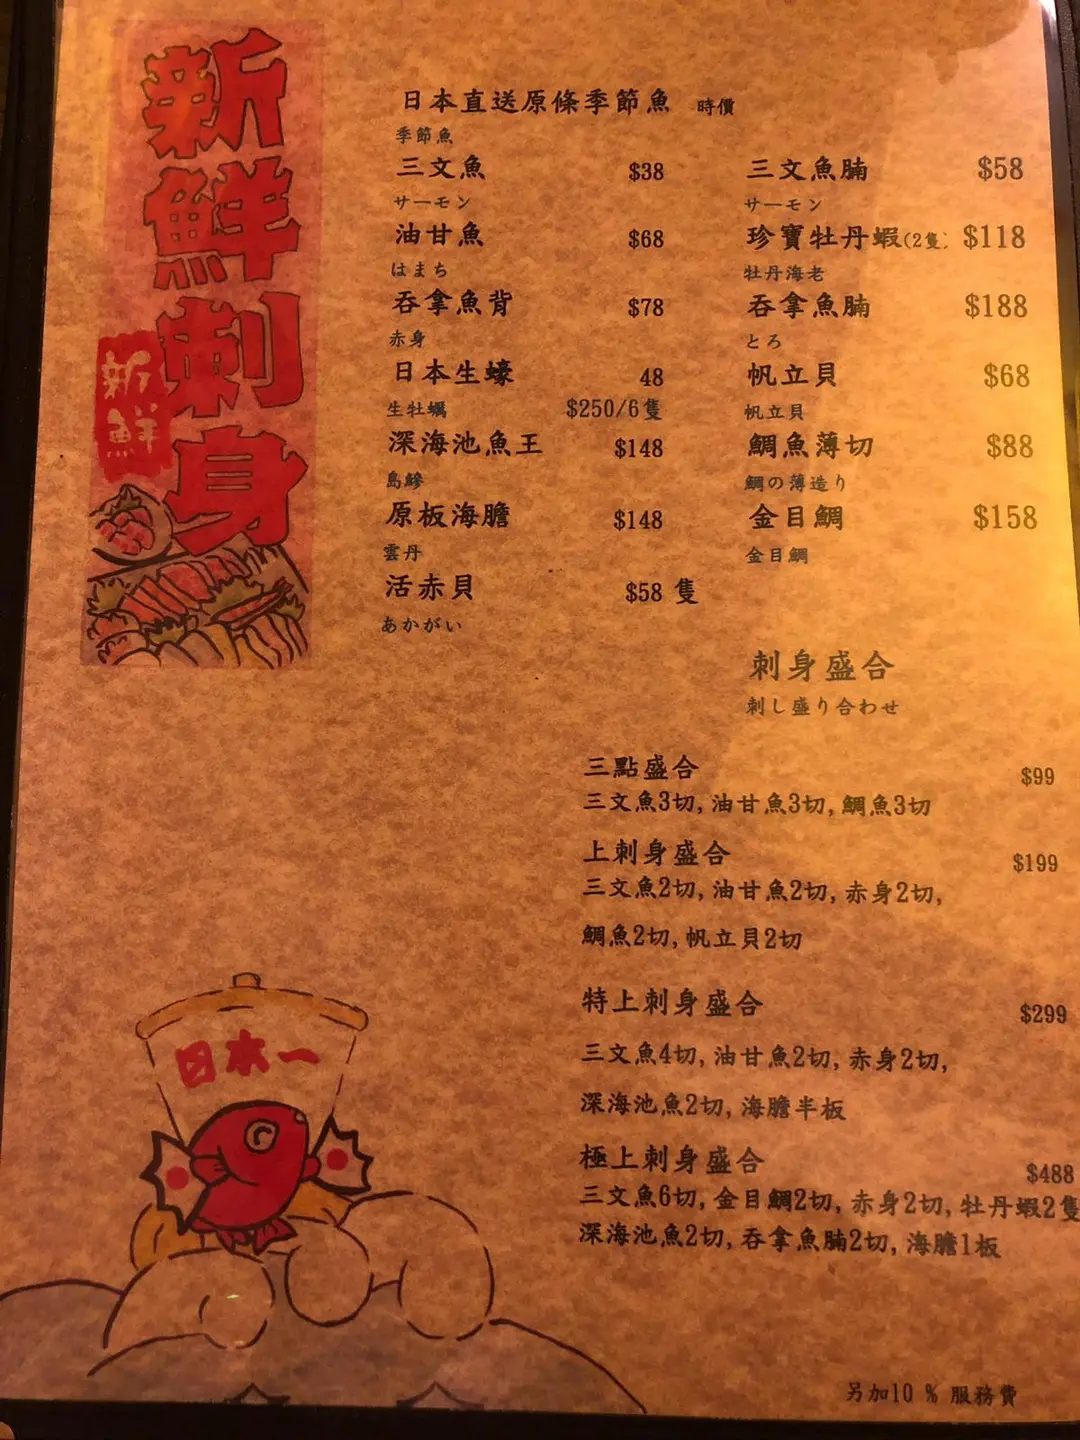 新鮮刺身
新鮮
日本直送原條季節魚 時價
季節魚
三文魚 $38
サーモン
油甘魚 $68
はまち
吞拿魚背 $78
赤身
日本生蠔 48
生牡蠣 $250/6隻
深海池魚王 $148
島鰺
原板海膽 $148
雲丹
活赤貝 $58 隻
あかがい
三文魚腩 $58
サーモン
珍寶牡丹蝦(2隻) $118
牡丹海老
吞拿魚腩 $188
とろ
帆立貝 $68
帆立貝
鯛魚薄切 $88
鯛の薄造り
金目鯛 $158
金目鯛
刺身盛合
刺し盛り合わせ
三點盛合 $99
三文魚3切, 油甘魚3切, 鯛魚3切
上刺身盛合 $199
三文魚2切, 油甘魚2切, 赤身2切,
鯛魚2切, 帆立貝2切
特上刺身盛合 $299
三文魚4切, 油甘魚2切, 赤身2切,
深海池魚2切, 海膽半板
極上刺身盛合 $488
三文魚6切, 金目鯛2切, 赤身2切, 牡丹蝦2隻
深海池魚2切, 吞拿魚腩2切, 海膽1板
日本一
另加10 % 服務費